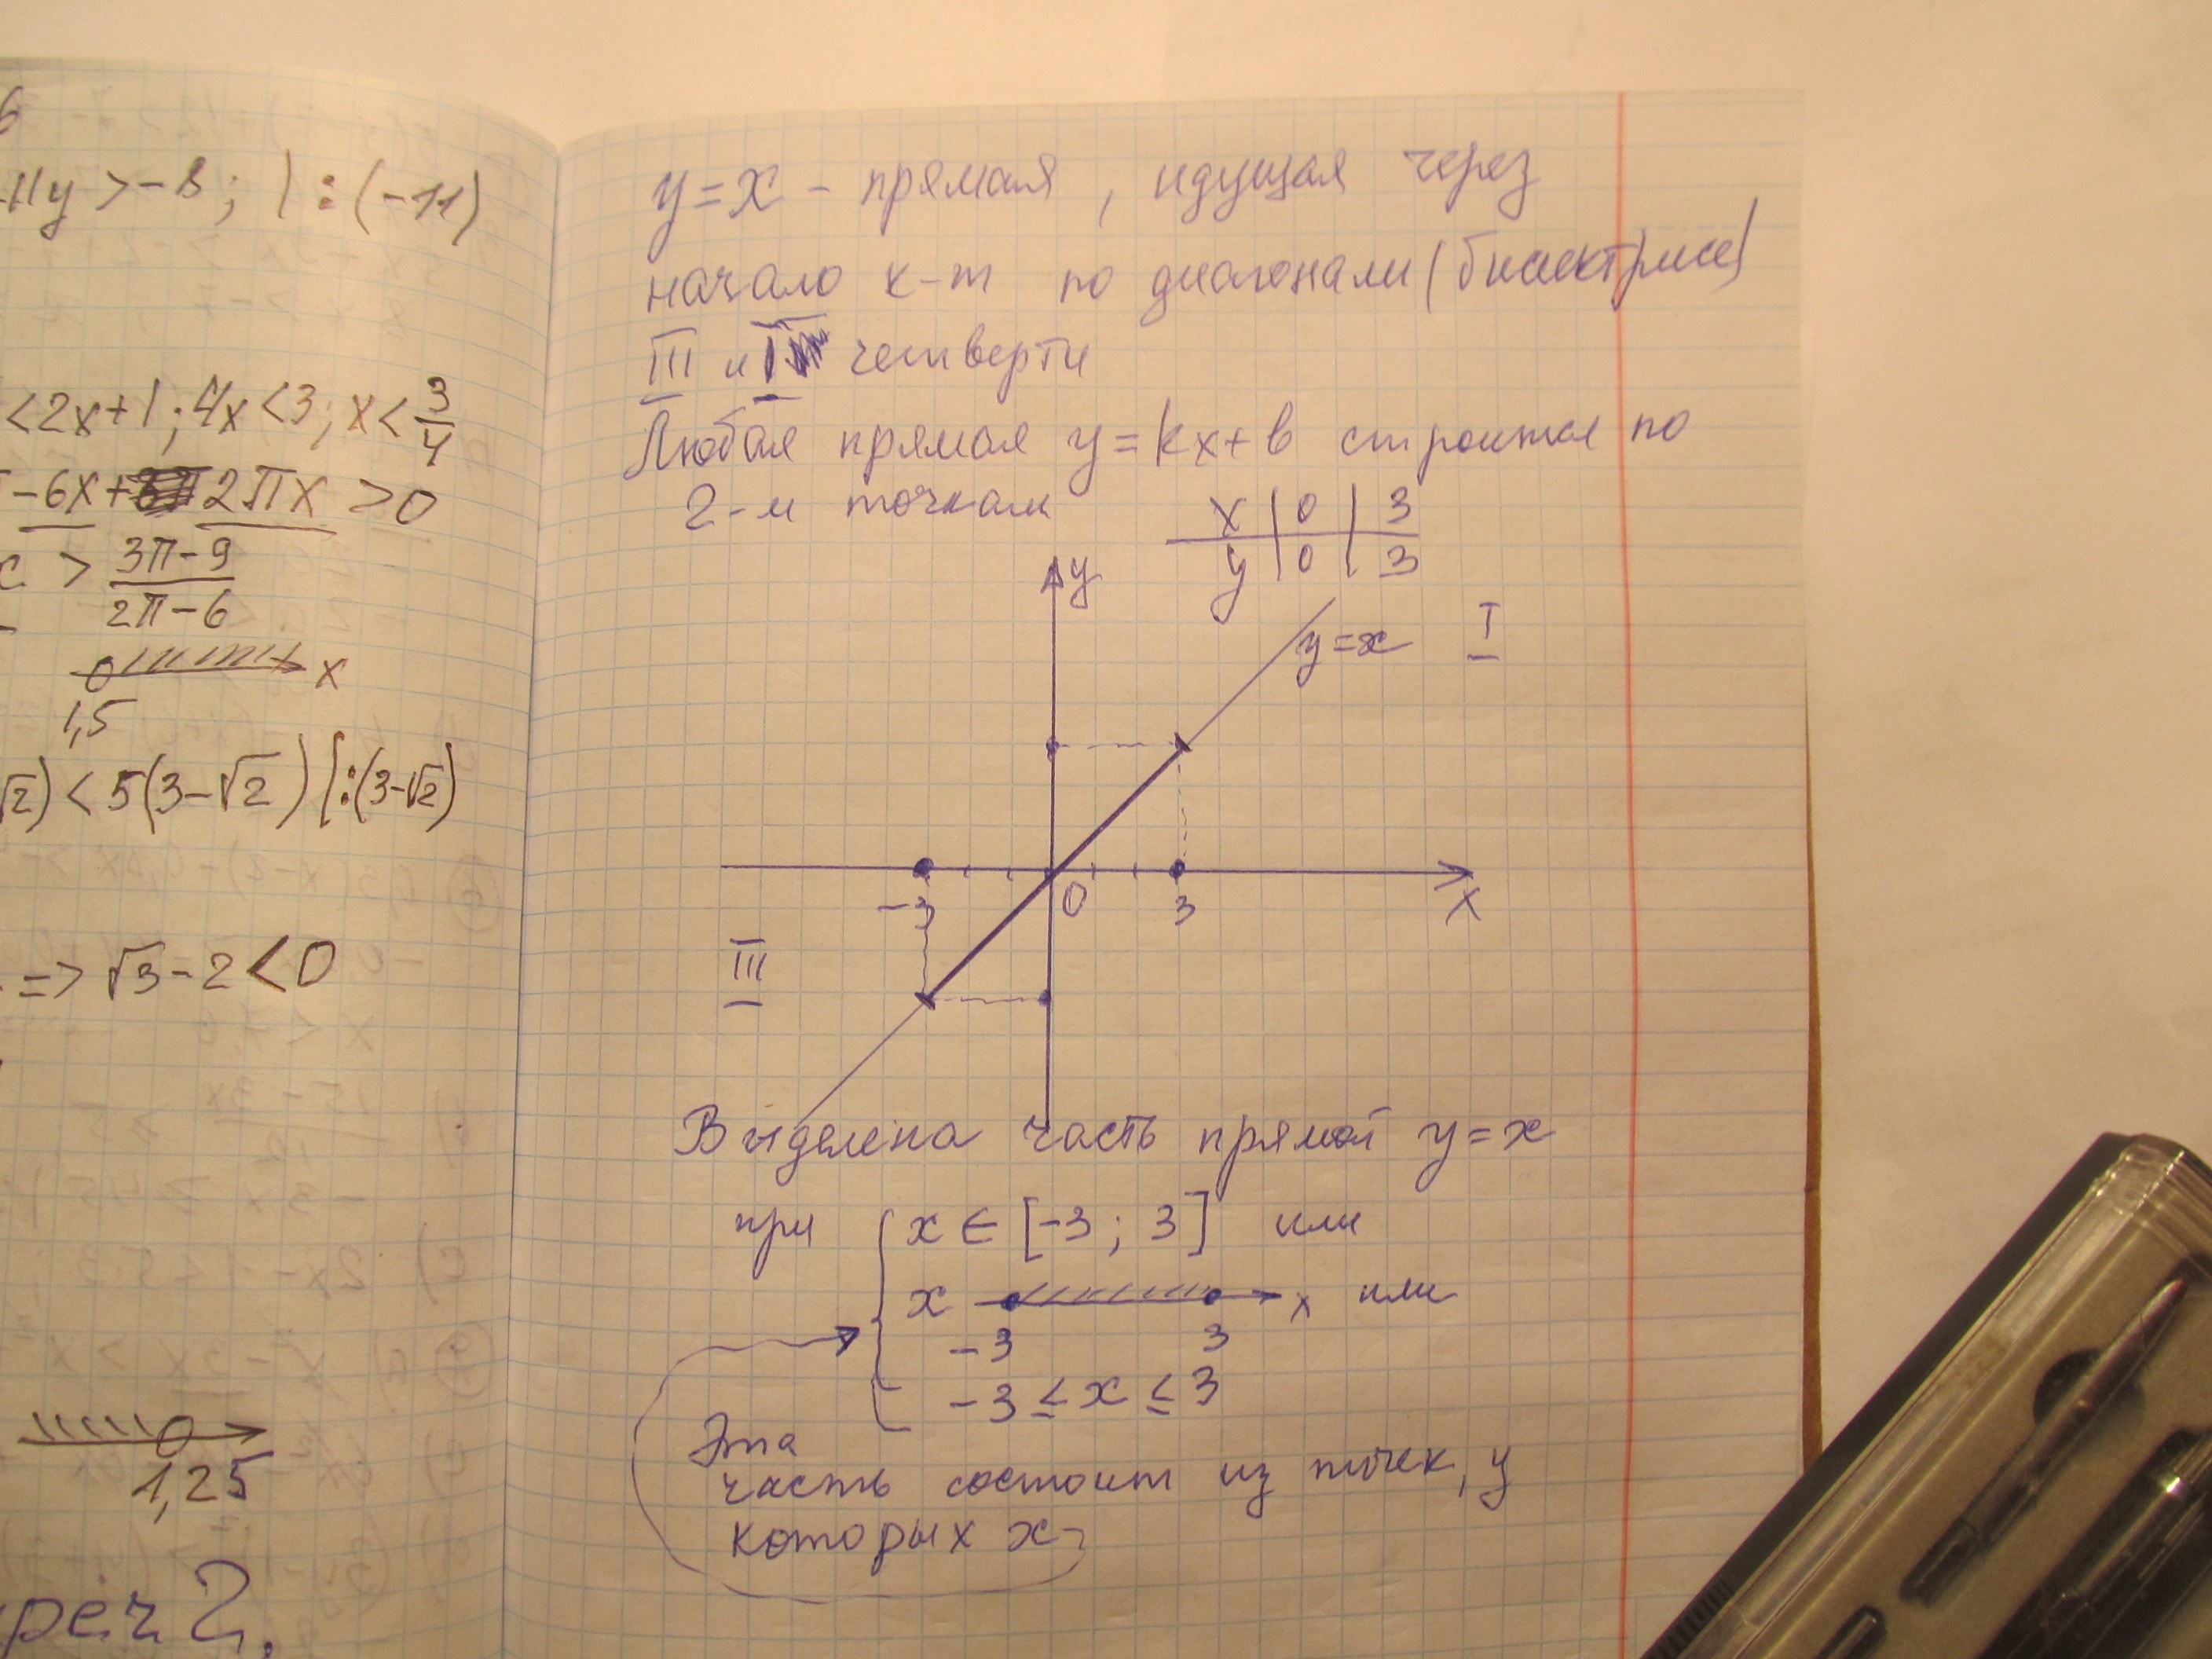 6
-11y > -8; | : (-11)
< 2x+1; 4x < 3; x < 3/4
-6x + 2πx > 0
> 3π-9 / 2π-6
x
1,5
√2) < 5(3-√2) | :(3-√2)
=> √3 - 2 < 0
1,25
2.
y=x - прямая, идущая через
начало к-т по диагонали (биссектрисе)
III и I четверти
Любая прямая y=kx+b строится по
2-м точкам
x | 0 | 3
y | 0 | 3
y
y=x I
-3 0 3 x
III
Выделена часть прямой y=x
при x ∈ [-3; 3] или
x x или
-3 3
-3 ≤ x ≤ 3
Эта
часть состоит из точек, у
которых x